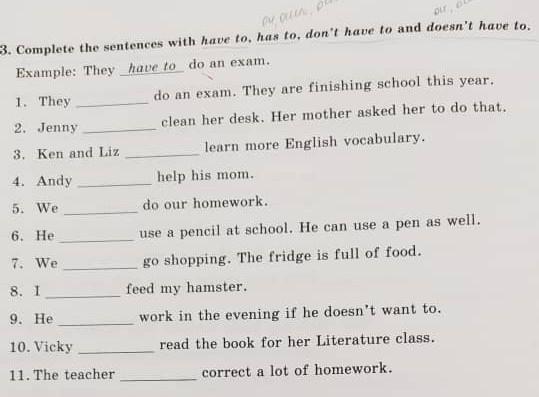 3. Complete the sentences with have to, has to, don't have to and doesn't have to.
Example: They have to do an exam.
1. They ________ do an exam. They are finishing school this year.
2. Jenny ________ clean her desk. Her mother asked her to do that.
3. Ken and Liz ________ learn more English vocabulary.
4. Andy ________ help his mom.
5. We ________ do our homework.
6. He ________ use a pencil at school. He can use a pen as well.
7. We ________ go shopping. The fridge is full of food.
8. I ________ feed my hamster.
9. He ________ work in the evening if he doesn't want to.
10. Vicky ________ read the book for her Literature class.
11. The teacher ________ correct a lot of homework.